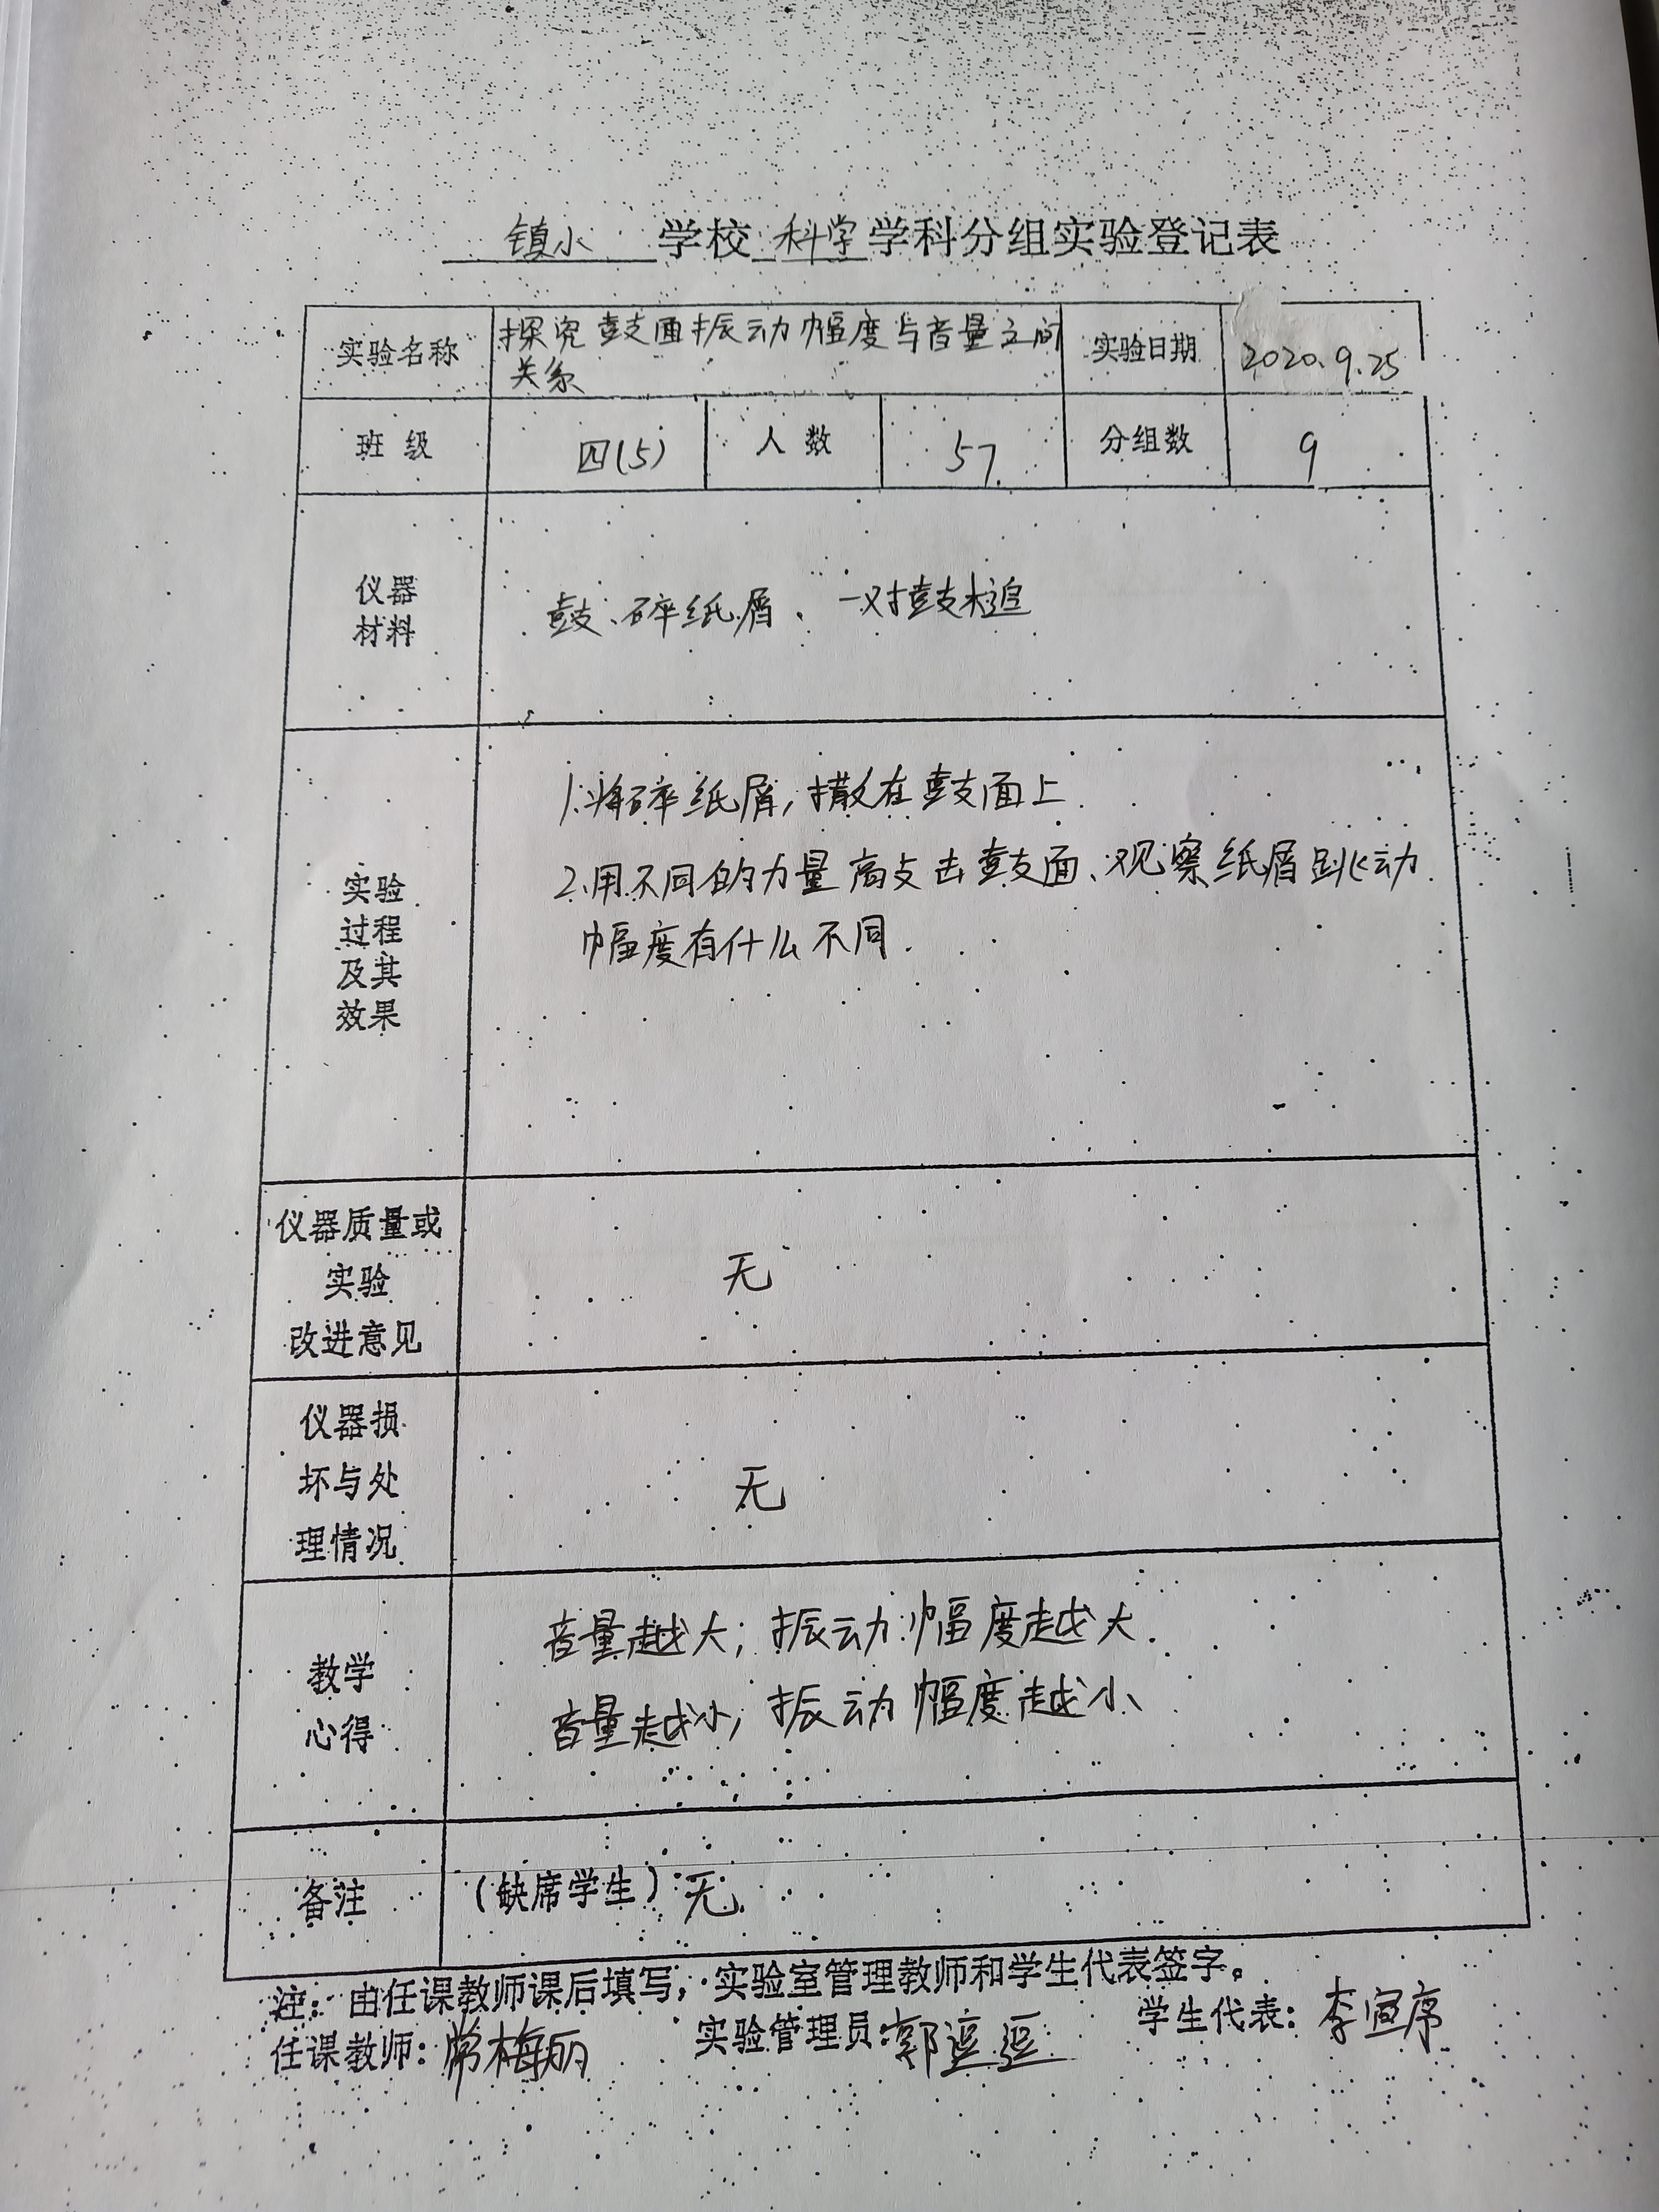 镇小 学校 科学 学科分组实验登记表
实验名称 探究鼓面振动幅度与音量之间 实验日期 2020.9.25
关系
班级 四(5) 人数 57. 分组数 9
仪器
材料
鼓、碎纸屑、一对鼓槌
实验
过程
及其
效果
1.将碎纸屑,撒在鼓面上.
2.用不同的力量敲击鼓面、观察纸屑跳动
幅度有什么不同.
仪器质量或
实验
改进意见
无
仪器损
坏与处
理情况
无
教学
心得
音量越大;振动幅度越大.
音量越小,振动幅度越小、
备注 (缺席学生) 无.
注: 由任课教师课后填写,实验室管理教师和学生代表签字。
任课教师: 常梅丽 实验管理员: 郭逗逗 学生代表: 李宣序